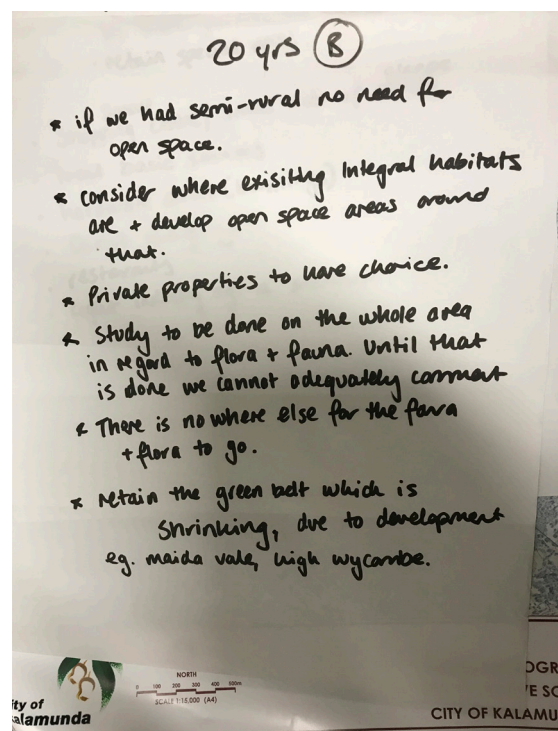 20 yrs B
* if we had semi-rural no need for
open space.
* consider where exisiting Integral habitats
are + develop open space areas around
that.
* Private properties to have choice.
* Study to be done on the whole area
in regard to flora + fauna. Until that
is done we cannot adequately comment
* There is no where else for the fauna
+ flora to go.
* retain the green belt which is
shrinking, due to development
eg. maida vale, high wycombe.
NORTH
0 100 200 300 400 500m
SCALE 1:15,000 (A4)
ity of
alamunda
OGR
E SC
CITY OF KALAMU